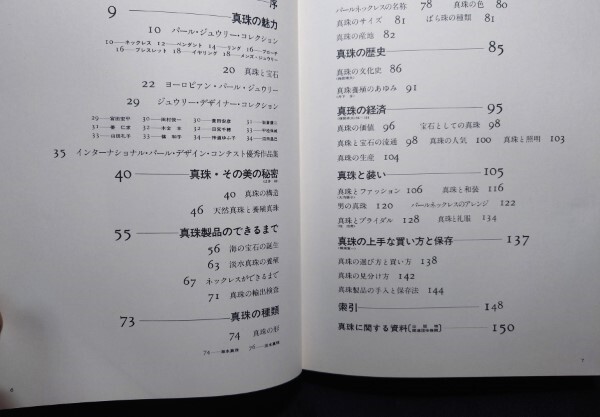 序
9 真珠の魅力
10 パール・ジュウリー・コレクション
10──ネックレス 12──ペンダント 14──リング 16──ブローチ
16──ブレスレット 18──イヤリング 18──メンズ・ジュウリー
20 真珠と宝石
22 ヨーロピアン・パール・ジュウリー
29 ジュウリー・デザイナー・コレクション
35 インターナショナル・パール・デザイン・コンテスト優秀作品集
40 真珠・その美の秘密
40 真珠の構造
46 天然真珠と養殖真珠
55 真珠製品のできるまで
56 海の宝石の誕生
63 淡水真珠の養殖
67 ネックレスができるまで
71 真珠の輸出検査
73 真珠の種類
74 真珠の形
6
パールネックレスの名称 78 真珠の色 80
真珠のサイズ 81 ばら珠の種類 81
真珠の産地 82
真珠の歴史 85
真珠の文化史 86
真珠養殖のあゆみ 91
真珠の経済 95
真珠の価値 96 宝石としての真珠 98
真珠と宝石の流通 98 真珠の人気 100 真珠と照明 103
真珠の生産 104
真珠と装い 105
真珠とファッション 106 真珠と和装 116
男の真珠 120 パールネックレスのアレンジ 122
真珠とブライダル 128 真珠と礼服 134
真珠の上手な買い方と保存 137
真珠の選び方と買い方 138
真珠の見分け方 142
真珠製品の手入と保存法 144
索引 148
真珠に関する資料 150
7